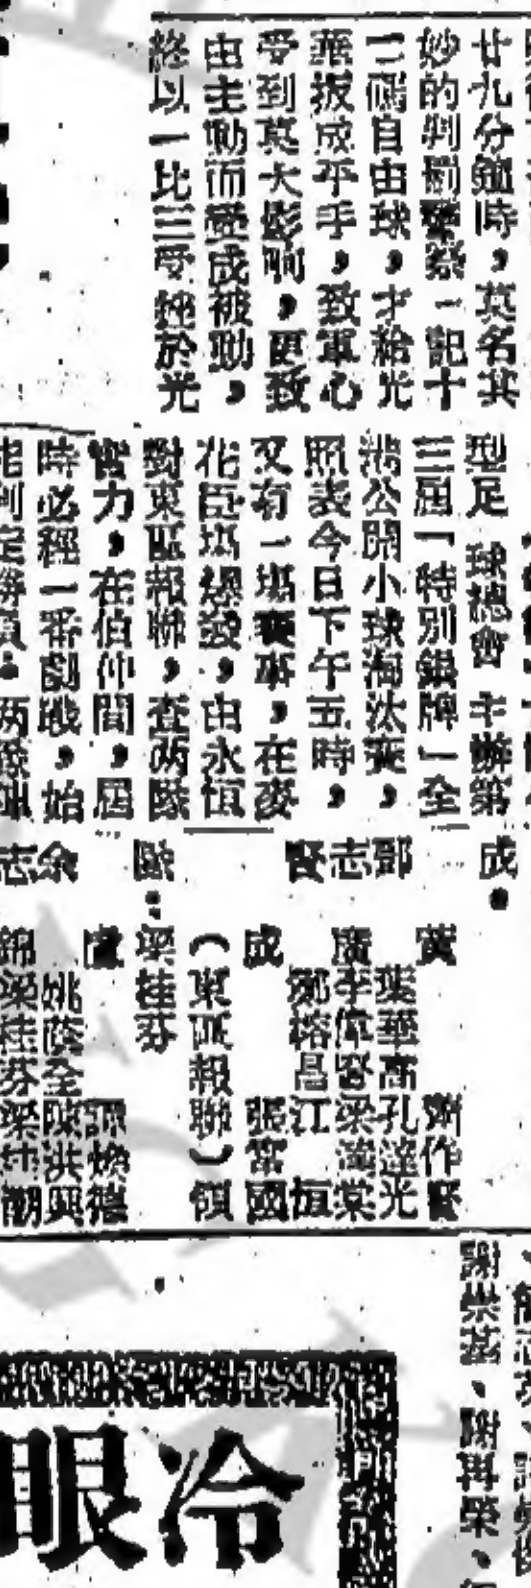 廿九分鐘時，莫名其
妙的判罰警察一記十
二碼自由球，才給光
華扳成平手，致軍心
受到莫大影响，更致
由主動而變成被動，
終以一比三受挫於光
型足球總會主辦第
三屆「特別銀牌」全
港公開小球淘汰賽，
照表今日下午五時，
又有一塲賽事，在麥
花臣塲爆發，由永恒
對東區報聯，查兩隊
實力，在伯仲間，屆
時必經一番劇戰，始
能判定勝負。兩隊
成。
黃 作賢
鄧 葉華高孔達光
志廣李偉
賢 鄭榕昌江 恒
成 張富國
（東區報聯）領
隊：梁桂芬
盧 譚煥德
余 姚蔭全陳洪興
志錦梁桂芬梁 潮
謝樂基、謝再榮、
冷眼